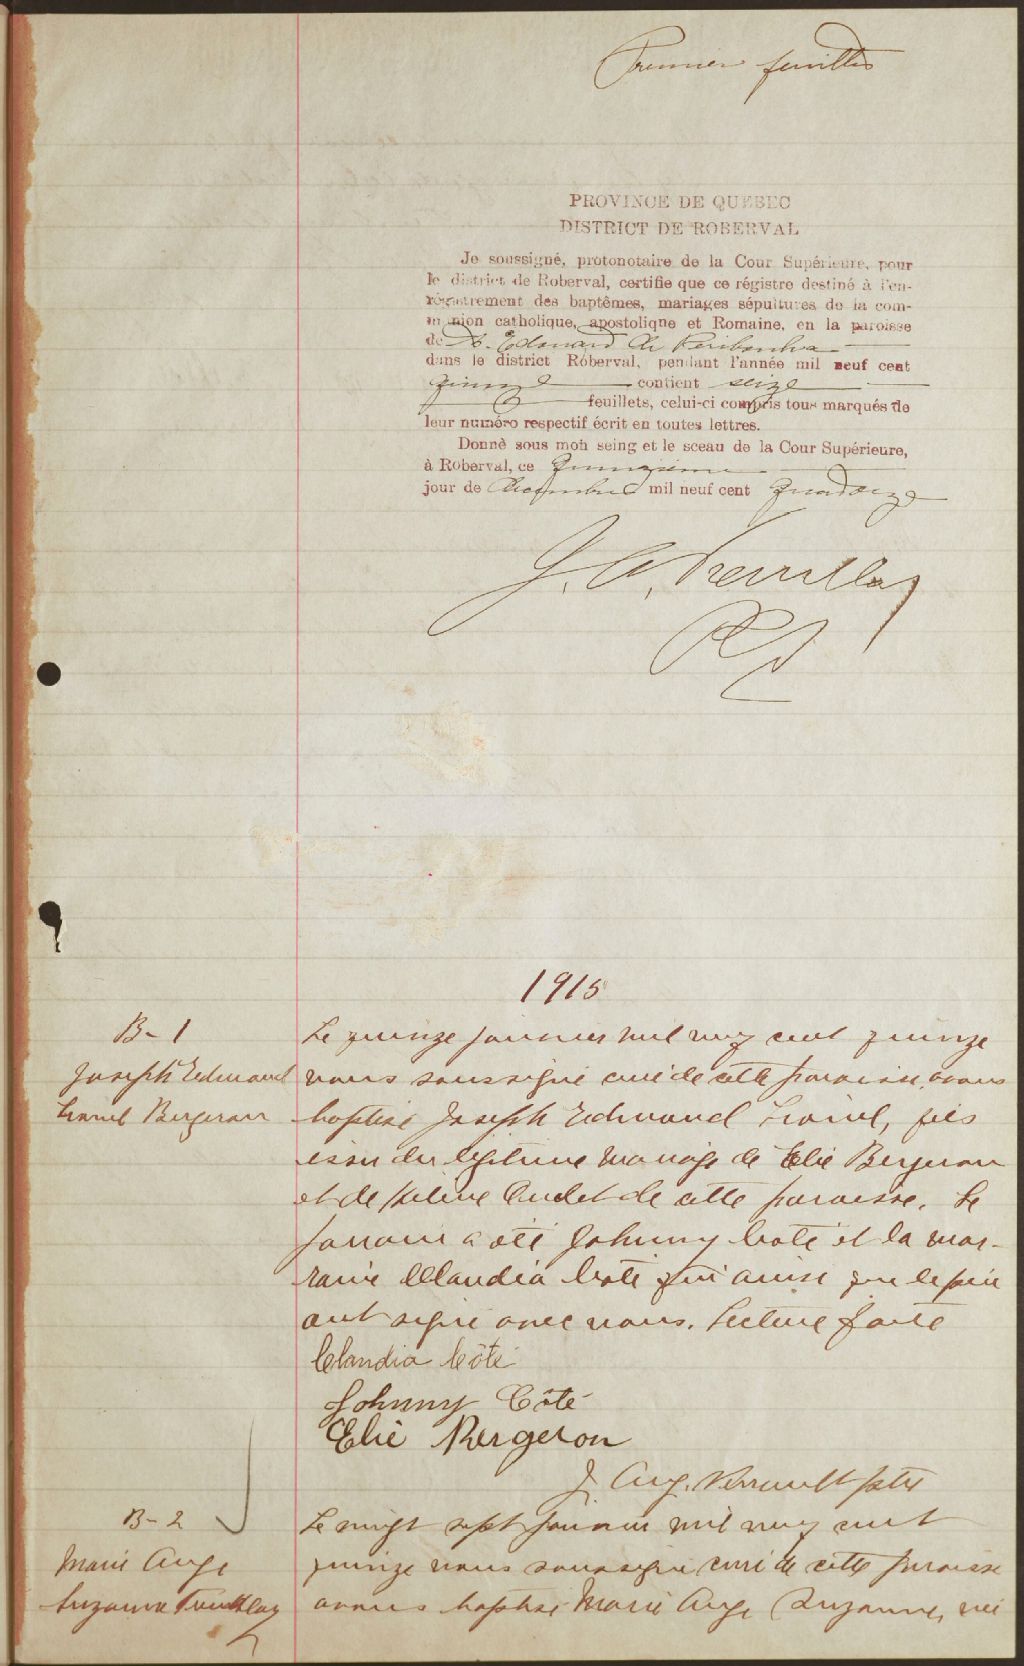 Premier feuillet
PROVINCE DE QUEBEC
DISTRICT DE ROBERVAL
Je soussigné, protonotaire de la Cour Supérieure, pour
le district de Roberval, certifie que ce régistre destiné à l'en-
régistrement des baptêmes, mariages sépultures de la com-
munion catholique, apostolique et Romaine, en la paroisse
de St. Edouard de Péribonka
dans le district Roberval, pendant l'année mil neuf cent
quinze contient seize
feuillets, celui-ci compris tous marqués de
leur numéro respectif écrit en toutes lettres.
Donnè sous mon seing et le sceau de la Cour Supérieure,
à Roberval, ce quinzième
jour de décembre mil neuf cent quatorze
J. A.
1915
B-1
Joseph Edmond
Lionel Bergeron
Le quinze janvier mil neuf cent quinze
nous soussigné curé de cette paroisse, avons
baptisé Joseph Edmond Lionel, fils
issu du légitime mariage de Elie Bergeron
et de Audet de cette paroisse. Le
parrain a été Johnny Coté et la mar-
raine Claudia Coté qui ainsi que le père
ont signé avec nous. Lecture faite
Claudia Côté
Johnny Côté
Elie Bergeron
J. Aug. Perreault ptre
B-2
Marie Ange
Suzanne Tremblay
Le vingt sept janvier mil neuf cent
quinze nous soussigné curé de cette paroisse
avons baptisé Marie Ange Suzanne, née